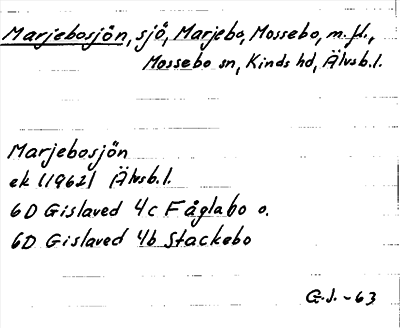 Marjebosjön, sjö, Marjebo, Mossebo, m.fl.,
Mossebo sn, Kinds hd, Älvsb.l.
Marjebosjön
ek (1962) Älvsb.l.
6D Gislaved 4c Fåglabo o.
6D Gislaved 4b Stackebo
G.J. -63